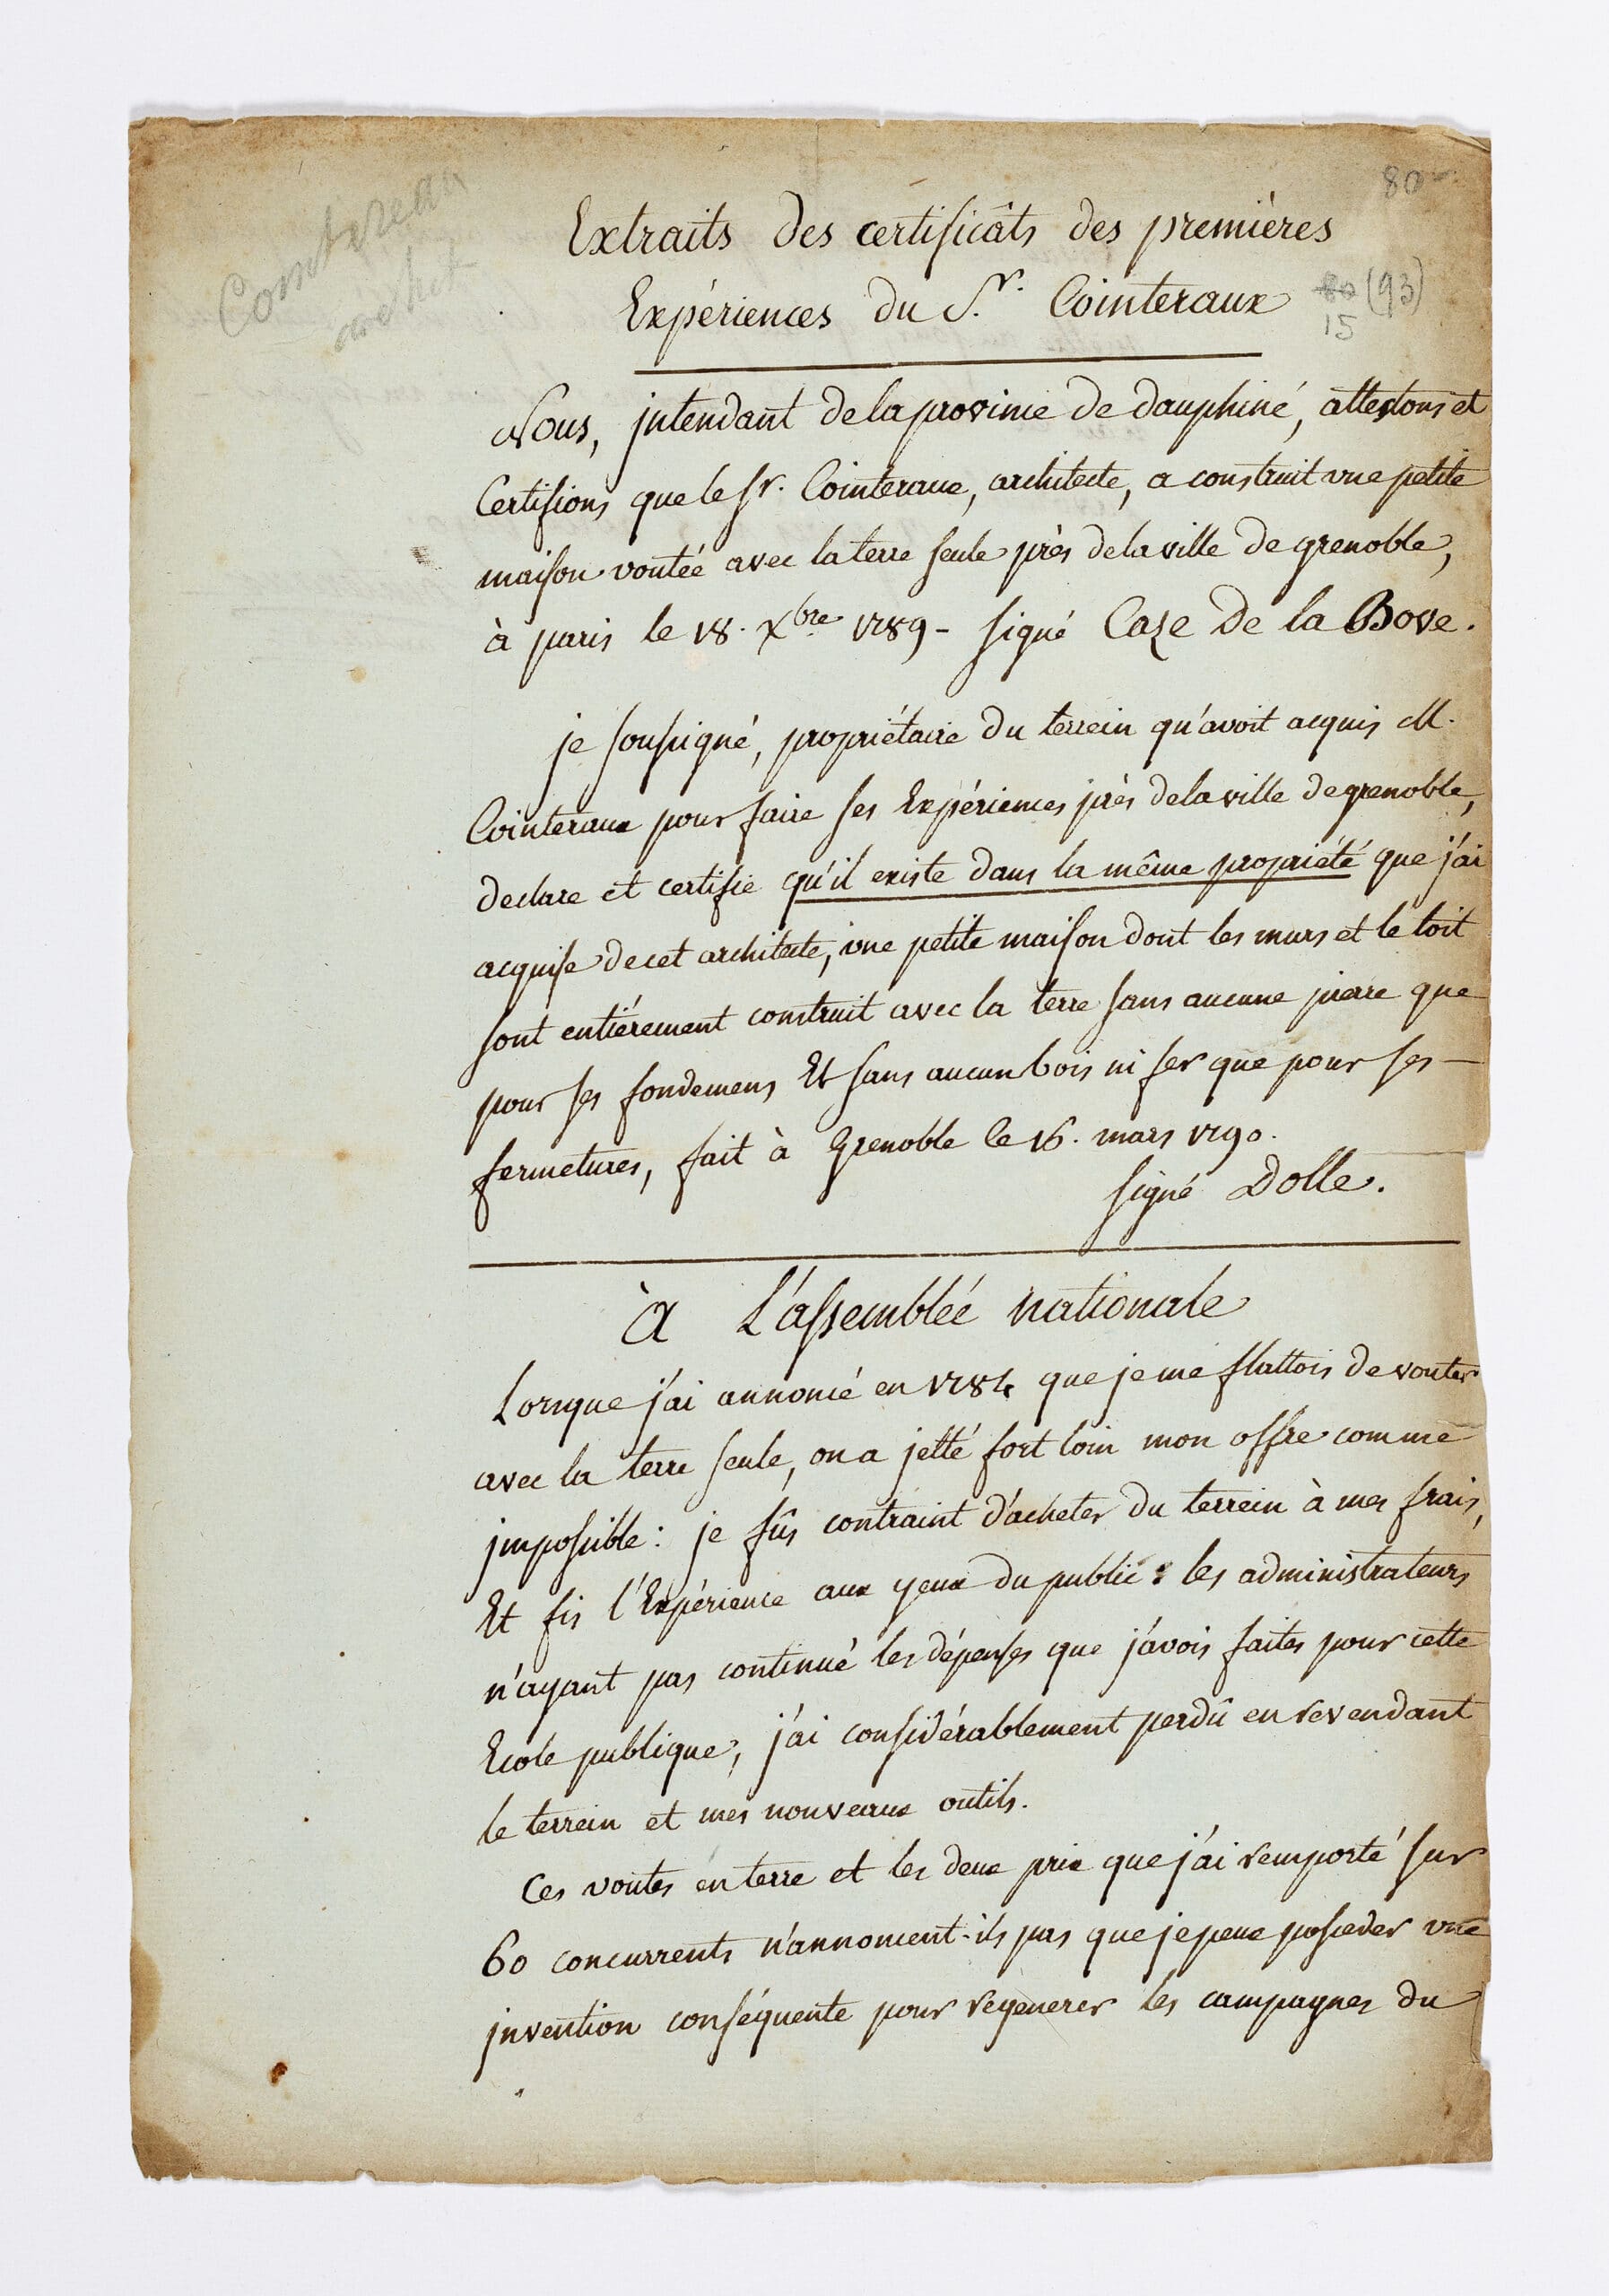 Cointereau
archit
80
Extraits des certificâts des premières
Expériences du Sr. Cointeraux
80 (93)
15
Nous, jntendant de la province de dauphiné, attestons et
Certifions que le Sr. Cointeraux, architecte, a construit vne petite
maison voutée avec la terre seule près de la ville de grenoble,
à paris le 18. Xbre 1789 - signé Caze De la Bove.
je soussigné, propriétaire du terrein qu'avoit acquis M.
Cointeraux pour faire ses Expériences près de la ville de grenoble,
declare et certifie qu'il existe dans la même propriété que j'ai
acquise de cet architecte, vne petite maison dont les murs et le toit
sont entiérement construit avec la terre sans aucune pierre que
pour ses fondemens Et sans aucun bois ni fer que pour ses —
fermetures, fait à Grenoble le 16. mars 1790.
signé Dolle.
à L'assemblée nationale
Lorsque j'ai annoncé en 1784 que je me flattois de vouter
avec la terre seule, on a jetté fort loin mon offre comme
jmpossible : je fûs contraint d'acheter du terrein à mes frais,
Et fis l'Expérience aux yeux du public : les administrateurs
n'ayant pas continué les dépenses que j'avois faites pour cette
Ecole publique, j'ai considérablement perdû en revendant
le terrein et mes nouveaux outils.
Ces voutes en terre et les deux prix que j'ai remporté sur
60 concurrents n'annoncent-ils pas que je peux posseder vne
jnvention conséquente pour regenerer les campagnes du